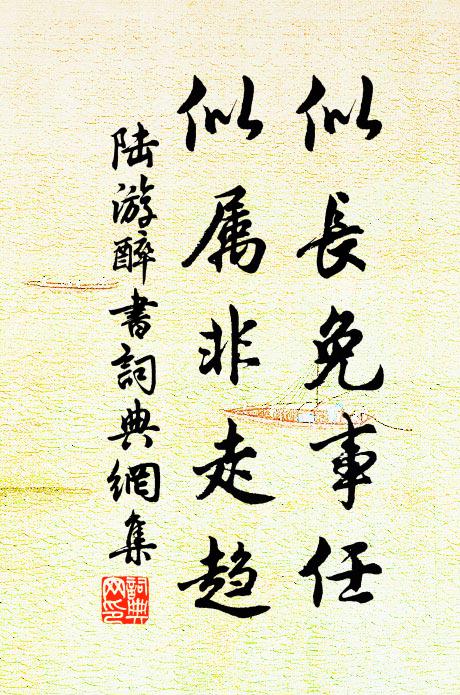 似長免事任
似属非走趋
陆游醉書詞典網集
詞典网印